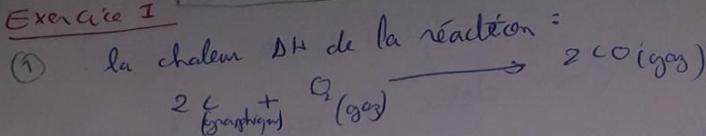 Exercice I
① la chaleur ΔH de la réaction :
2 C (graphique) + O2 (gaz) → 2 CO (gaz)